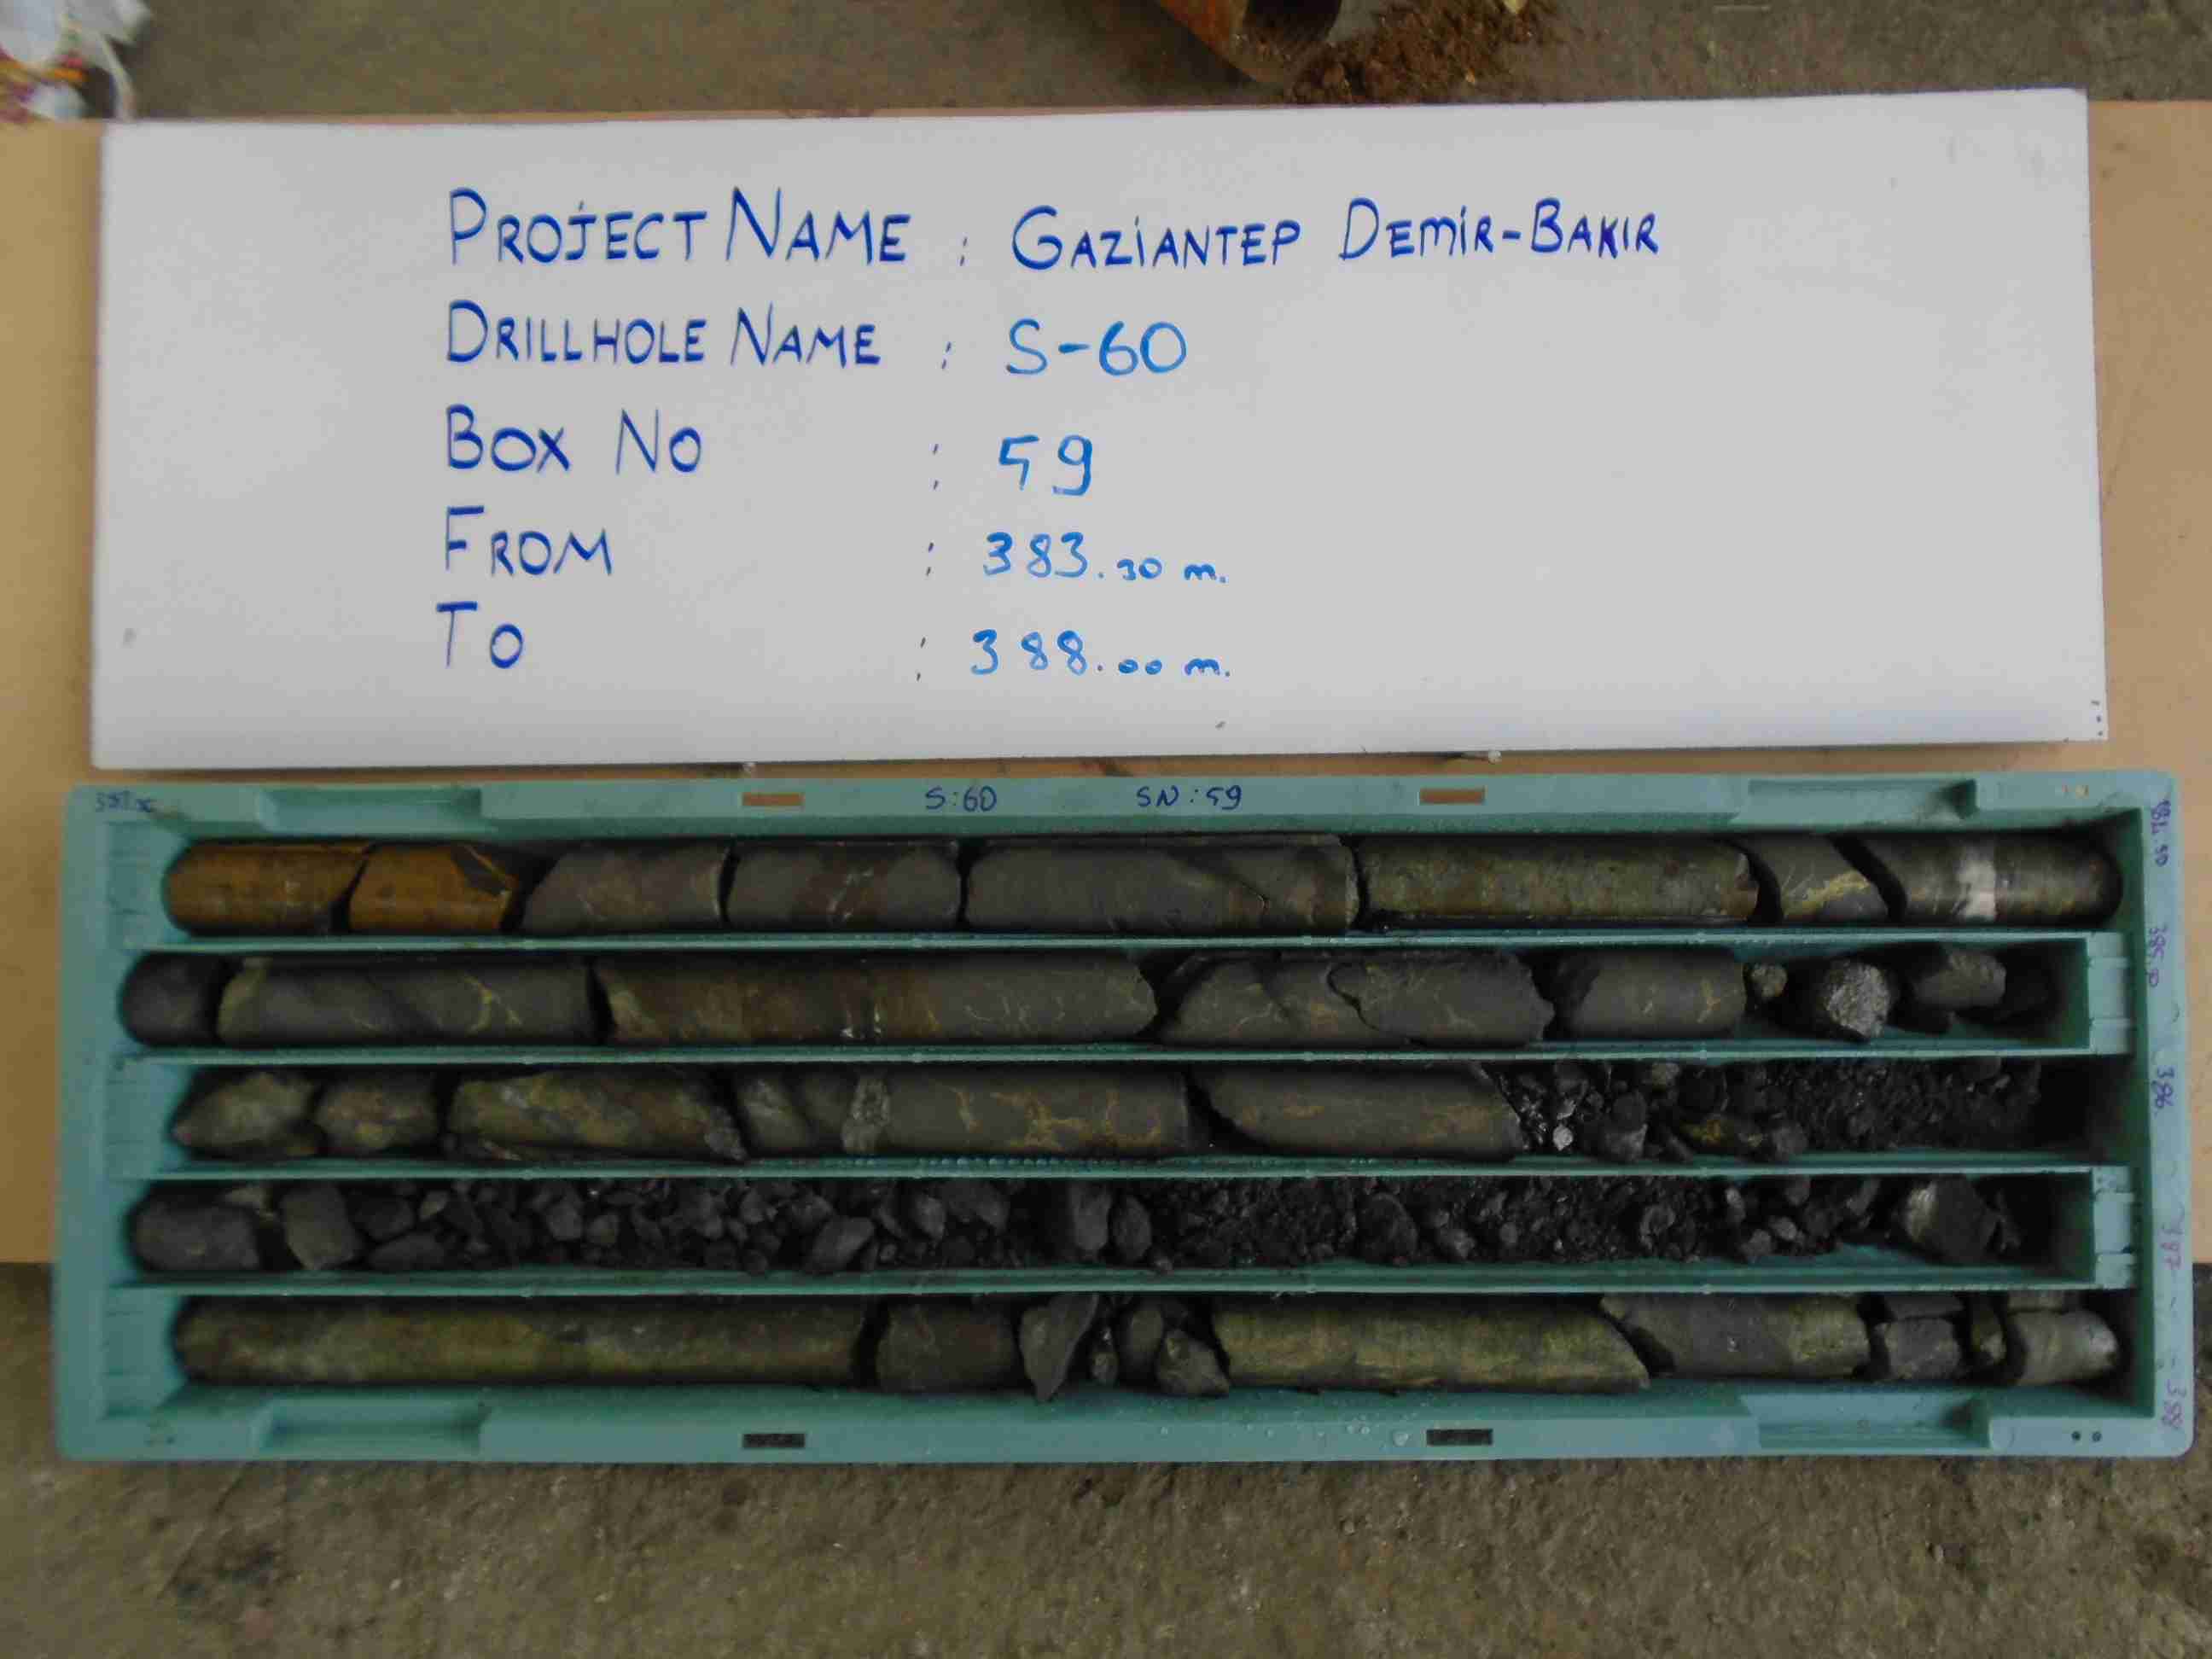 PROJECT NAME : GAZİANTEP DEMİR-BAKIR
DRILLHOLE NAME : S-60
BOX NO : 59
FROM : 383.30 m.
TO : 388.00 m.
S:60 SN:59
386
387
388